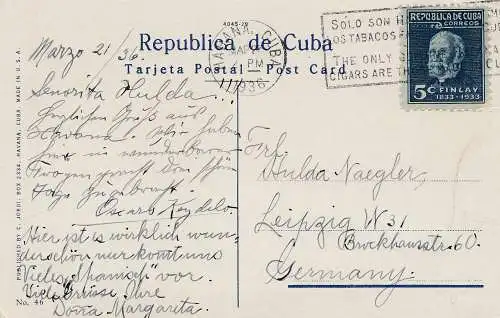 4045-29
Republica de Cuba
Tarjeta Postal — Post Card
HABANA, CUBA
PM
1936
SOLO SON H
OS TABACOS
THE ONLY
CIGARS ARE THE
REPUBLICA DE CUBA
5¢ FINLAY
1833-1933
PUBLISHED BY C. JORDI, BOX 2356, HAVANA, CUBA. MADE IN U.S.A.
No. 46
Marzo 21/36.
Señorita Hulda..
Herzlichen Gruß aus
Havana. Wir haben
hier
Tage
Oscaro
Hier ist es wirklich wun-
derschön nur kommt uns
Vieles "spanisch" vor.
Viele Grüsse Ihre
Dorra Margareta.
Frl.
Hulda Naegler,
Leipzig W 31
Brockhausstr. 60.
Germany.